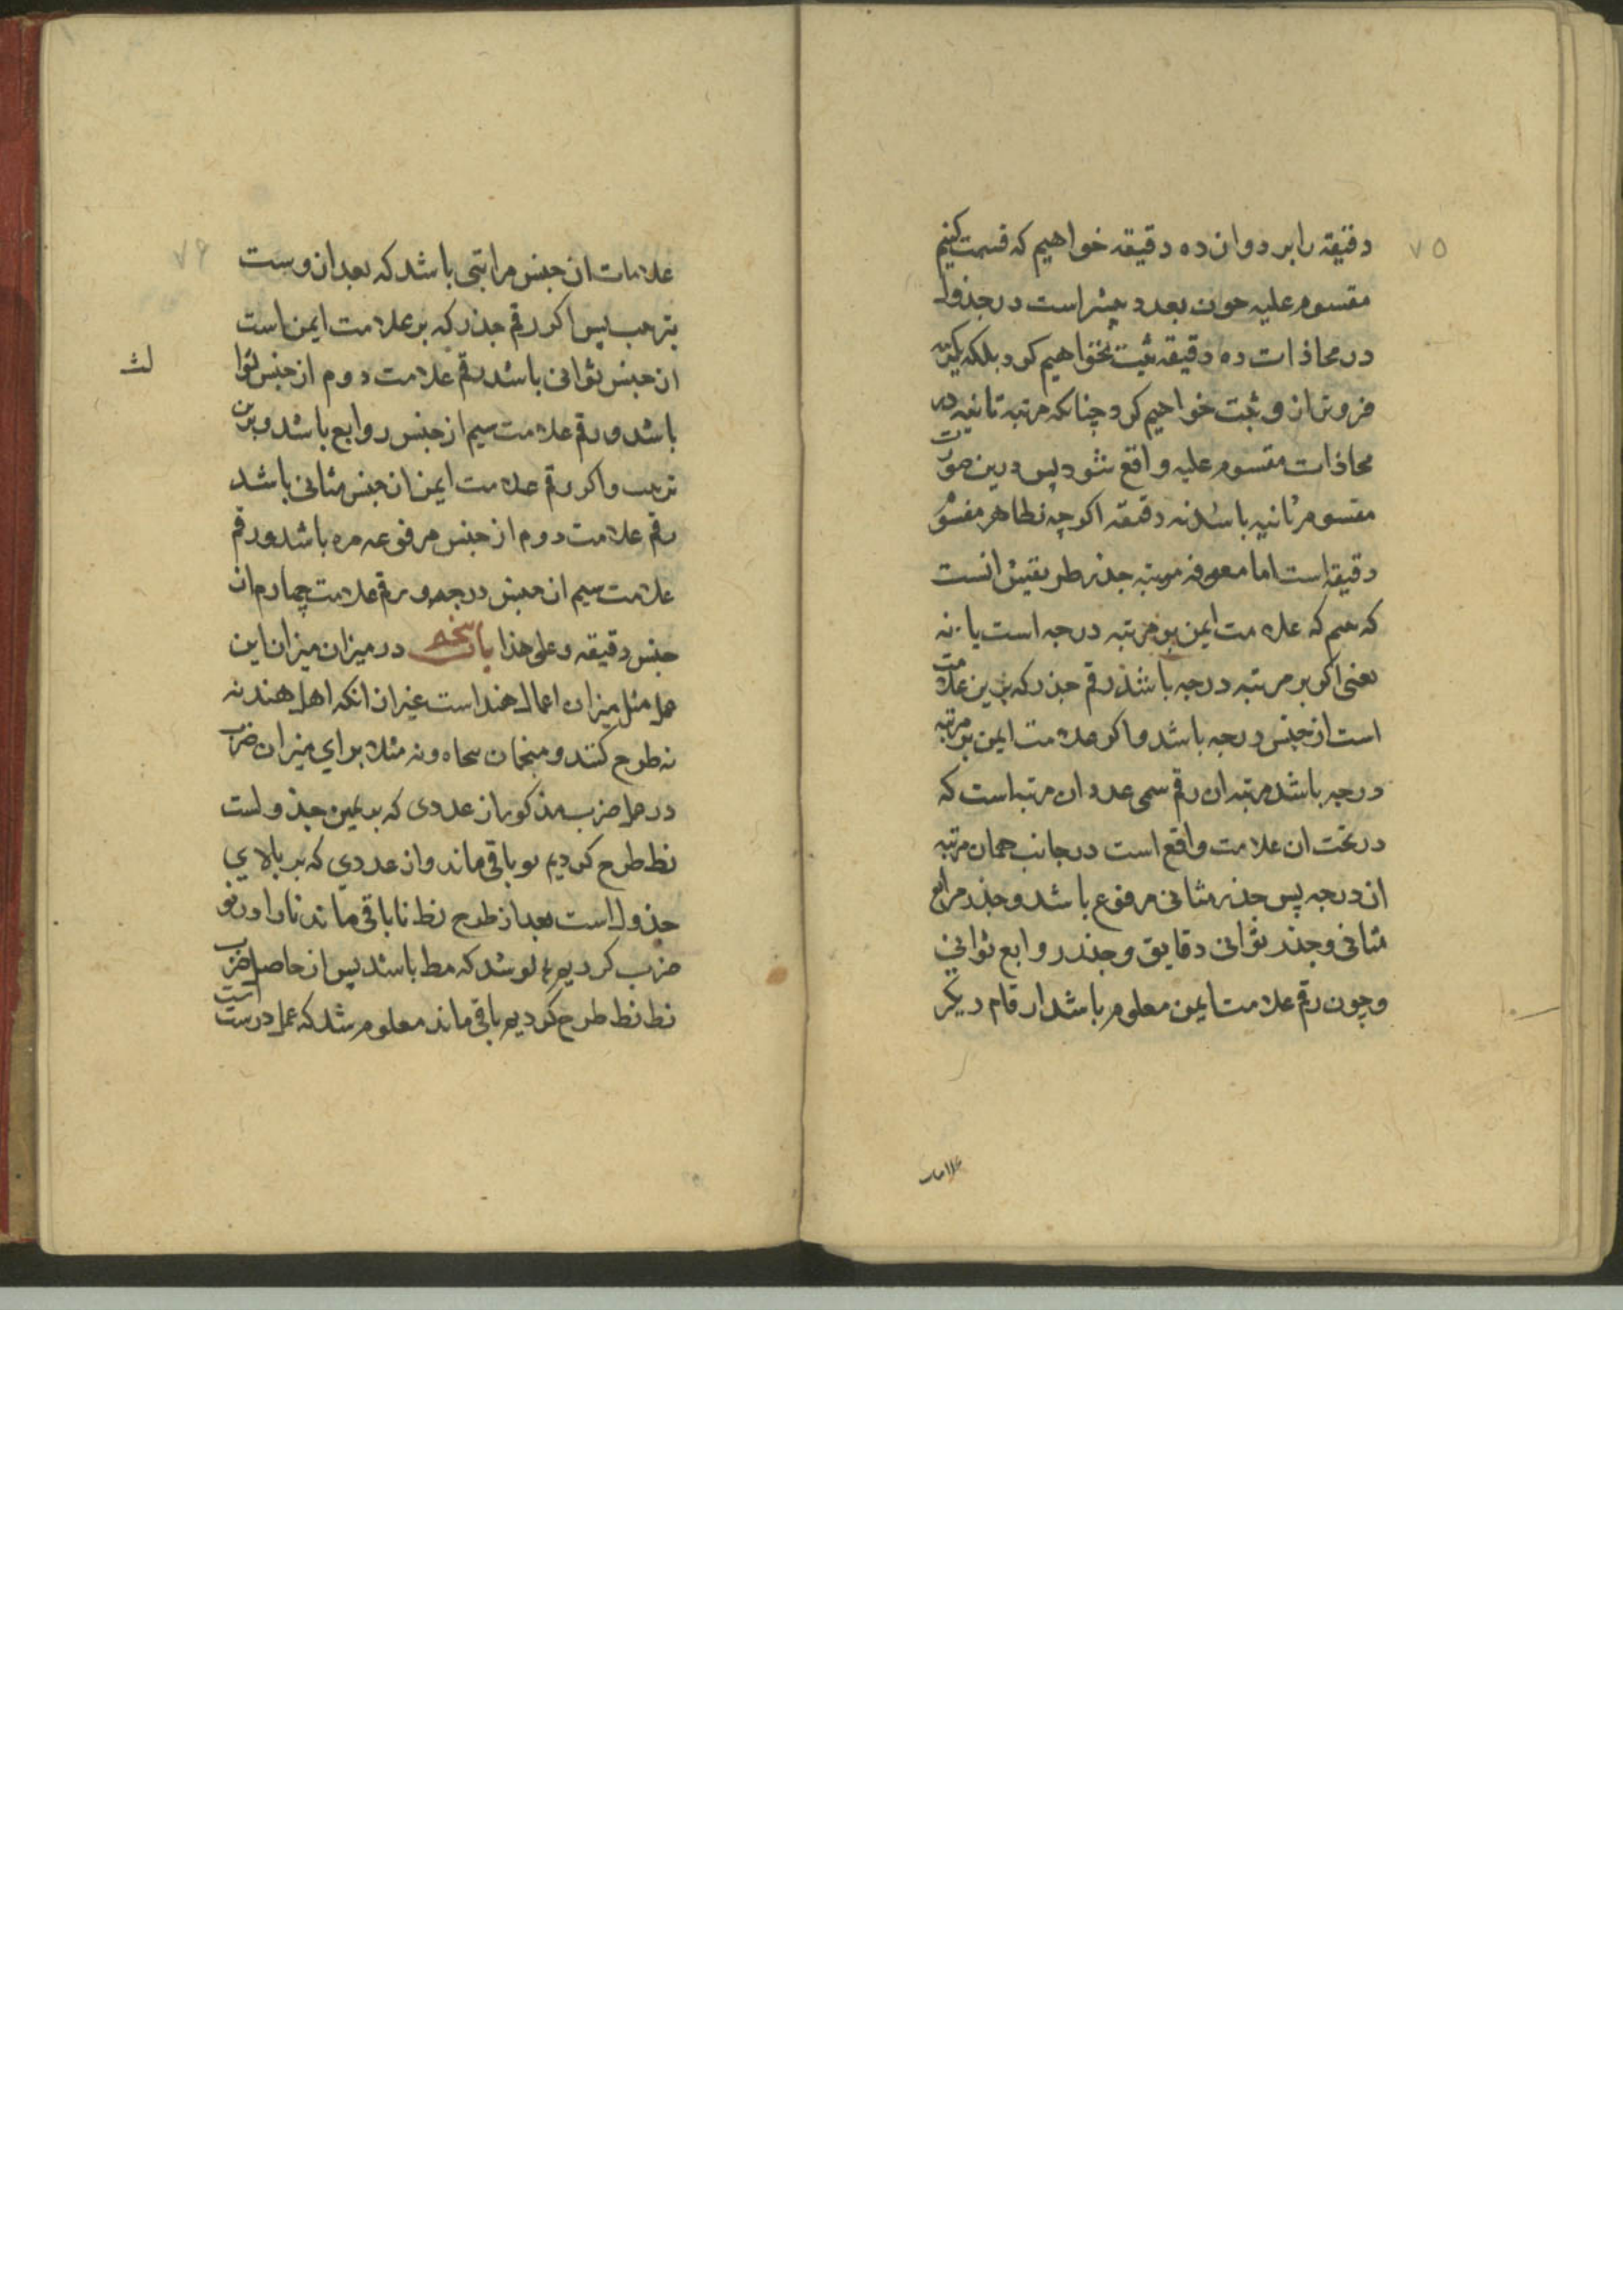 ۷۵
دقیقه را بر دوازده دقیقه خواهیم که قسمت کنیم
مقسوم علیه چون بعدد بیشتر است در جذول
در محاذات ده دقیقه ثبت نخواهیم کرد بلکه یکمرتبه
فروتر از و ثبت خواهیم کرد چنانکه مرتبه ثانیه در
محاذات مقسوم علیه واقع شود پس درین صورت
مقسوم ثانیه باشد نه دقیقه اکرچه بظاهر مقسوم
دقیقه است اما معرفه مرتبه جذر طریقش انست
که بینیم که علامت ایمن بر مرتبه درجه است یا نه
یعنی اکر بر مرتبه درجه باشد رقم جذر که برین علامت
است از جنس درجه باشد و اکر علامت ایمن بر مرتبه
درجه باشد مرتبه ان رقم سمی عدد ان مرتبه است که
در تحت ان علامت واقع است در جانب همان مرتبه
از درجه پس جذر مثانی مرفوع باشد و جذر مرابع
مثانی و جذر ثوانی دقایق و جذر روابع ثوانی
و چون رقم علامت ایمن معلوم باشد ارقام دیکر
علامات
۷۶
علامات از جنس مراتبی باشد که بعد از وست
بترتیب پس اکر رقم جذر که بر علامت ایمن است
از جنس ثوانی باشد رقم علامت دوم از جنس ثوا
لث
باشد و رقم علامت سیم از جنس روابع باشد و برین
ترتیب و اکر رقم علامت ایمن از جنس مثانی باشد
رقم علامت دوم از جنس مرفوعه مره باشد و رقم
علامت سیم از جنس درجه و رقم علامت چهارم از
جنس دقیقه و علی هذا باب پنجم در میزان میزان این
عمل مثل میزان اعمال هند است غیر از انکه اهل هند نه
نه طرح کنند و منجمان پنجاه و نه مثلا برای میزان ضرب
در عمل ضرب مذکور از عددی که بر یمین جذولست
نط طرح کردیم نو باقی ماند و از عددی که بر بالای
جذول است بعد از طرح نط نا باقی ماند نا را در نو
ضرب کردیم لو شد که مط باشد پس از حاصل ضرب
نط نط طرح کردیم باقی ماند معلوم شد که عمل درست است